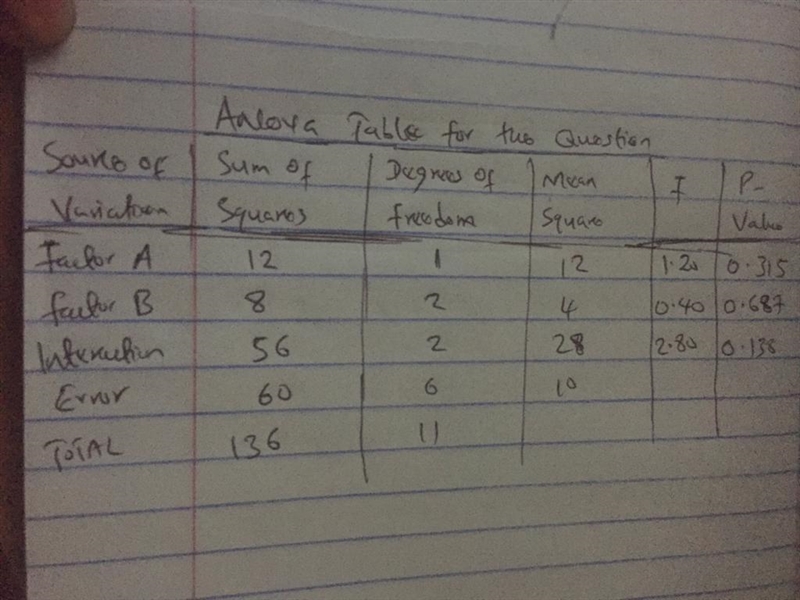 Anova Table for the Question
Source of Variation | Sum of Squares | Degrees of freedom | Mean Square | F | P-Value
Factor A | 12 | 1 | 12 | 1.20 | 0.315
factor B | 8 | 2 | 4 | 0.40 | 0.687
Interaction | 56 | 2 | 28 | 2.80 | 0.138
Error | 60 | 6 | 10
TOTAL | 136 | 11